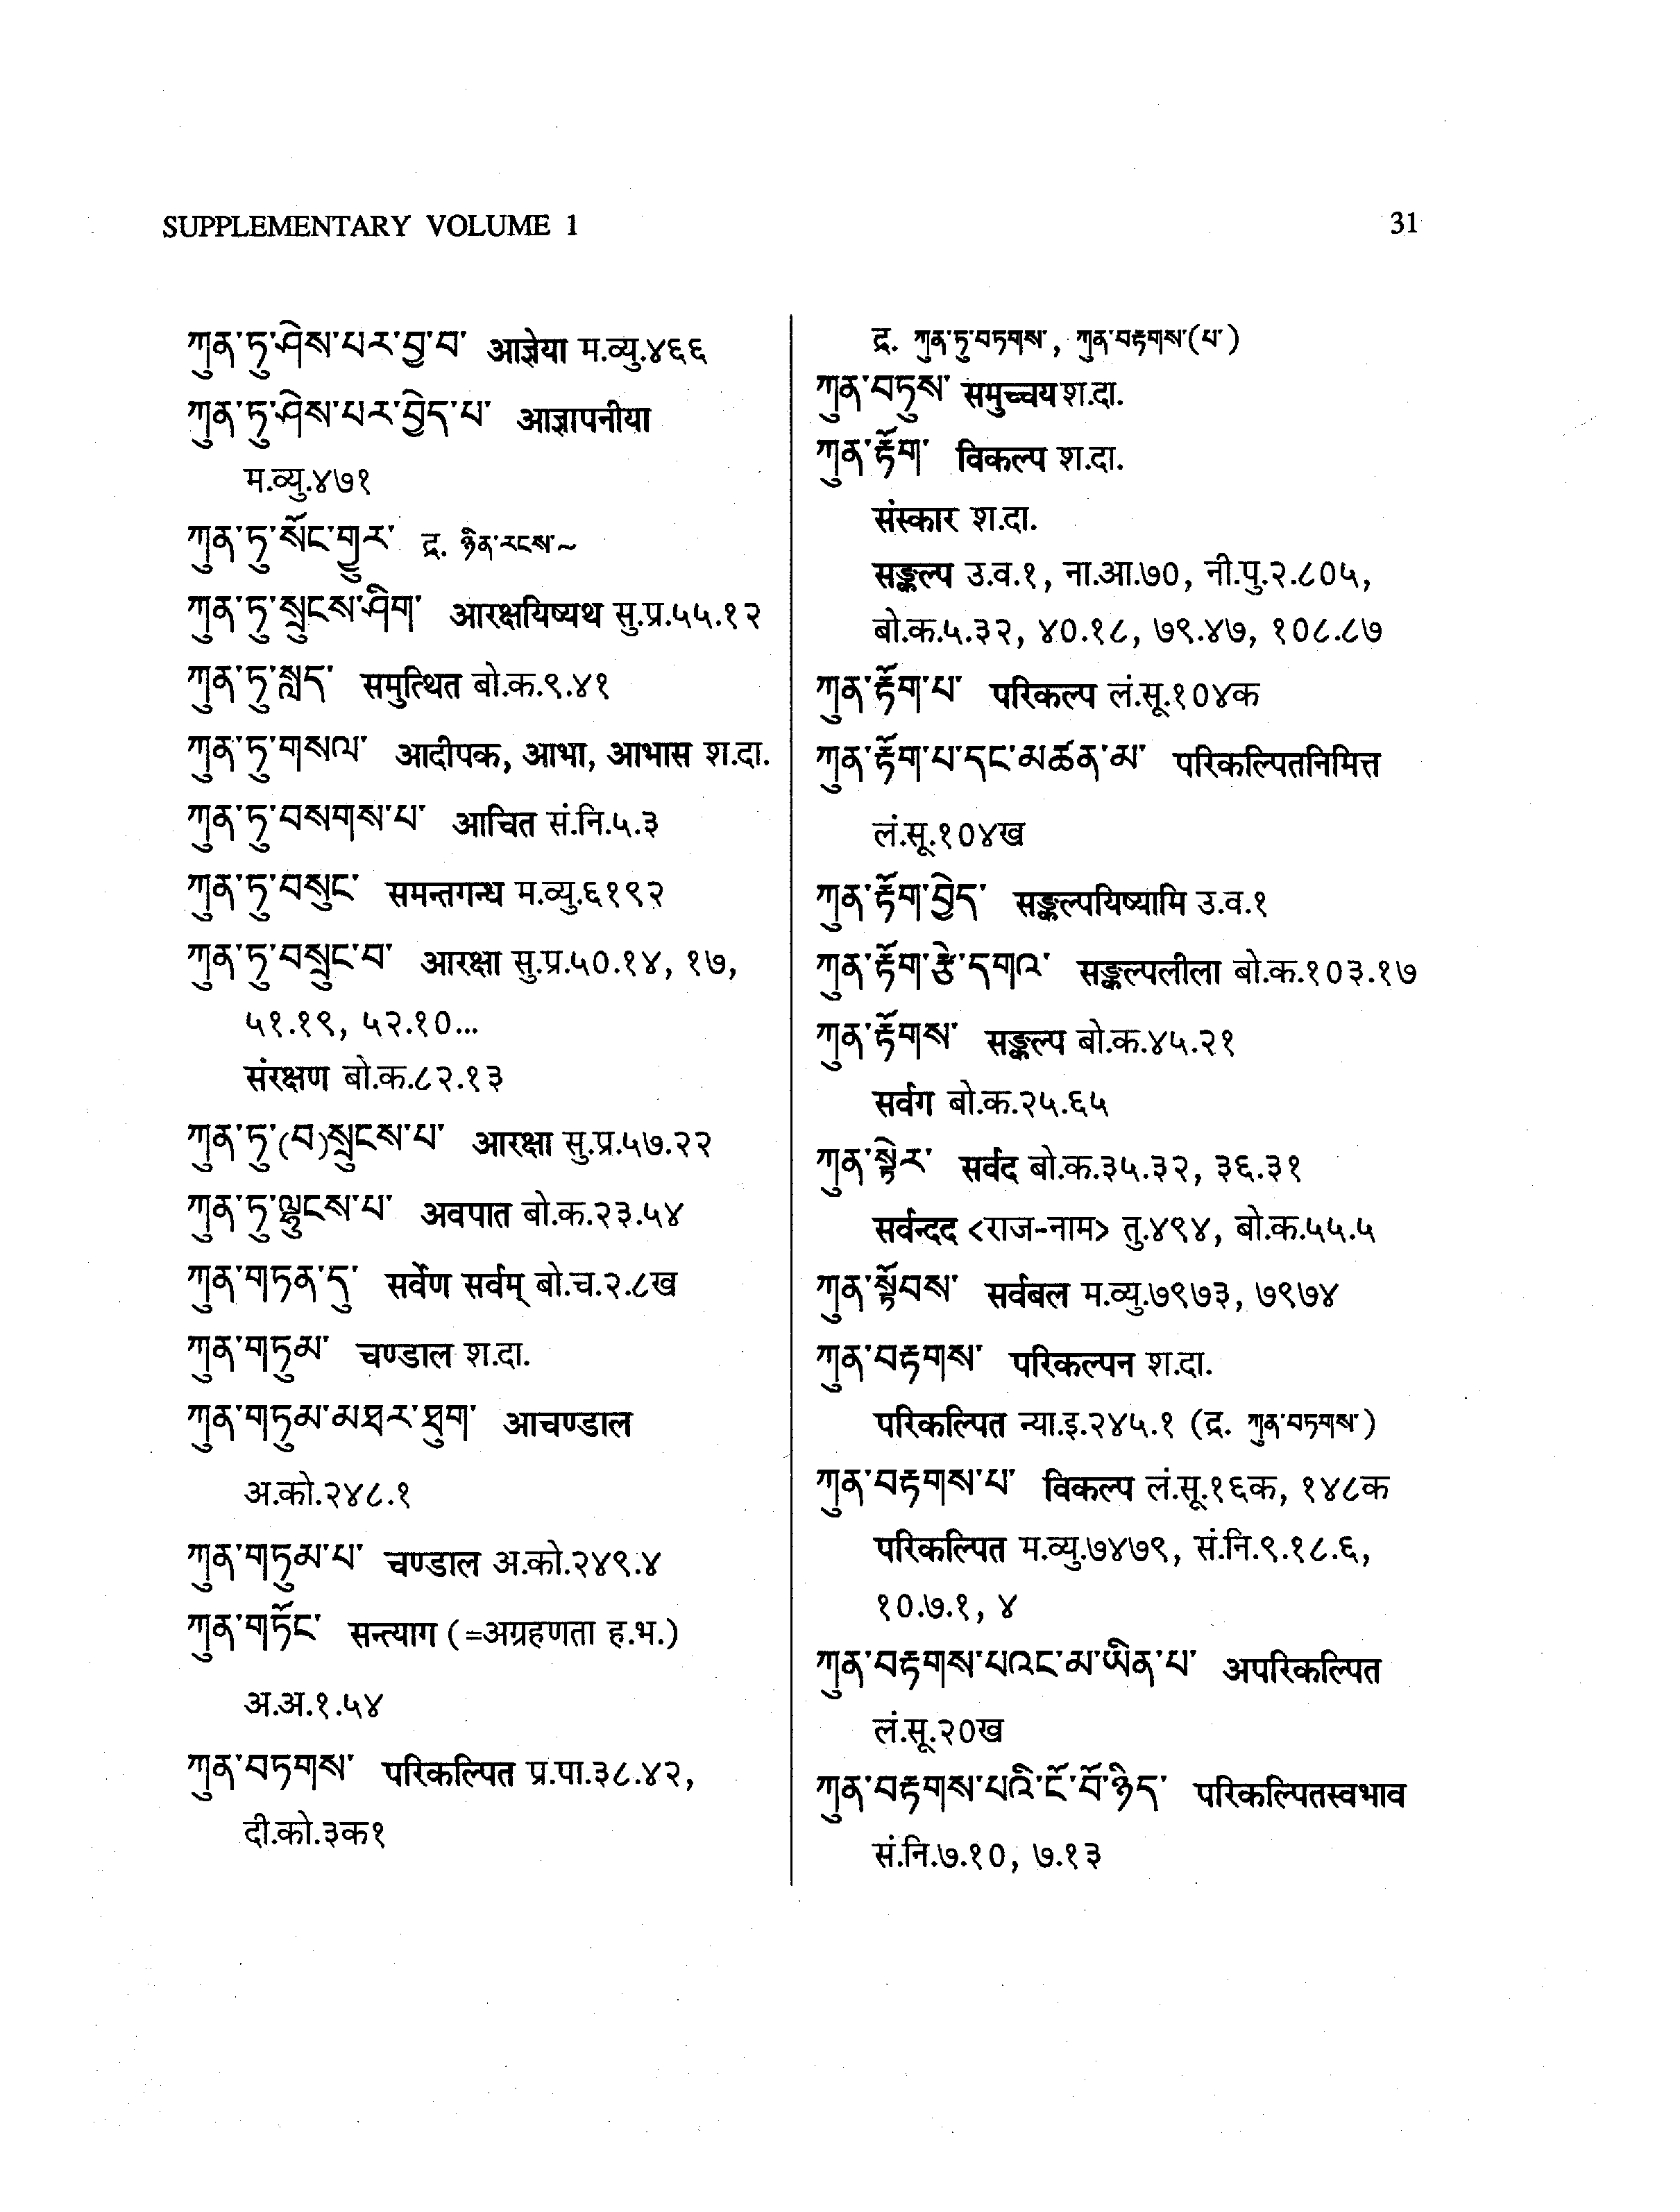 SUPPLEMENTARY VOLUME 1
31
ཀུན་ཏུ་ཤེས་པར་བྱ་བ་ आज्ञेया म.व्यु.४६६
ཀུན་ཏུ་ཤེས་པར་བྱེད་པ་ आज्ञापनीया
म.व्यु.४७१
ཀུན་ཏུ་སོང་གྱུར་ द्र. ཉིན་རངས་~
ཀུན་ཏུ་སྲུངས་ཤིག་ आरक्षयिष्यथ सु.प्र.५५.१२
ཀུན་ཏུ་སླད་ समुत्थित बो.क.९.४१
ཀུན་ཏུ་གསལ་ आदीपक, आभा, आभास श.दा.
ཀུན་ཏུ་བསགས་པ་ आचित सं.नि.५.३
ཀུན་ཏུ་བསུང་ समन्तगन्ध म.व्यु.६१९२
ཀུན་ཏུ་བསྲུང་བ་ आरक्षा सु.प्र.५०.१४, १७,
५१.१९, ५२.१०...
संरक्षण बो.क.८२.१३
ཀུན་ཏུ་(བ)སྲུངས་པ་ आरक्षा सु.प्र.५७.२२
ཀུན་ཏུ་ལྷུངས་པ་ अवपात बो.क.२३.५४
ཀུན་གཏན་དུ་ सर्वेण सर्वम् बो.च.२.८ख
ཀུན་གཏུམ་ चण्डाल श.दा.
ཀུན་གཏུམ་མཐར་ཐུག་ आचण्डाल
अ.को.२४८.१
ཀུན་གཏུམ་པ་ चण्डाल अ.को.२४९.४
ཀུན་གཏོང་ सन्त्याग (=अग्रहणता ह.भ.)
अ.अ.१.५४
ཀུན་བཏགས་ परिकल्पित प्र.पा.३८.४२,
दी.को.३क१
द्र. ཀུན་ཏུ་བཏགས་, ཀུན་བརྟགས་(པ་)
ཀུན་བཏུས་ समुच्चय श.दा.
ཀུན་རྟོག་ विकल्प श.दा.
संस्कार श.दा.
सङ्कल्प उ.व.१, ना.आ.७०, नी.पु.२.८०५,
बो.क.५.३२, ४०.१८, ७९.४७, १०८.८७
ཀུན་རྟོག་པ་ परिकल्प लं.सू.१०४क
ཀུན་རྟོག་པ་དང་མཚན་མ་ परिकल्पितनिमित्त
लं.सू.१०४ख
ཀུན་རྟོག་བྱེད་ सङ्कल्पयिष्यामि उ.व.१
ཀུན་རྟོག་རྩེ་དགའ་ सङ्कल्पलीला बो.क.१०३.१७
ཀུན་རྟོགས་ सङ्कल्प बो.क.४५.२१
सर्वग बो.क.२५.६५
ཀུན་སྟེར་ सर्वद बो.क.३५.३२, ३६.३१
सर्वन्दद <राज-नाम> तु.४९४, बो.क.५५.५
ཀུན་སྟོབས་ सर्वबल म.व्यु.७९७३, ७९७४
ཀུན་བརྟགས་ परिकल्पन श.दा.
परिकल्पित न्या.इ.२४५.१ (द्र. ཀུན་བཏགས་)
ཀུན་བརྟགས་པ་ विकल्प लं.सू.१६क, १४८क
परिकल्पित म.व्यु.७४७९, सं.नि.९.१८.६,
१०.७.१, ४
ཀུན་བརྟགས་པའང་མ་ཡིན་པ་ अपरिकल्पित
लं.सू.२०ख
ཀུན་བརྟགས་པའི་ངོ་བོ་ཉིད་ परिकल्पितस्वभाव
सं.नि.७.१०, ७.१३